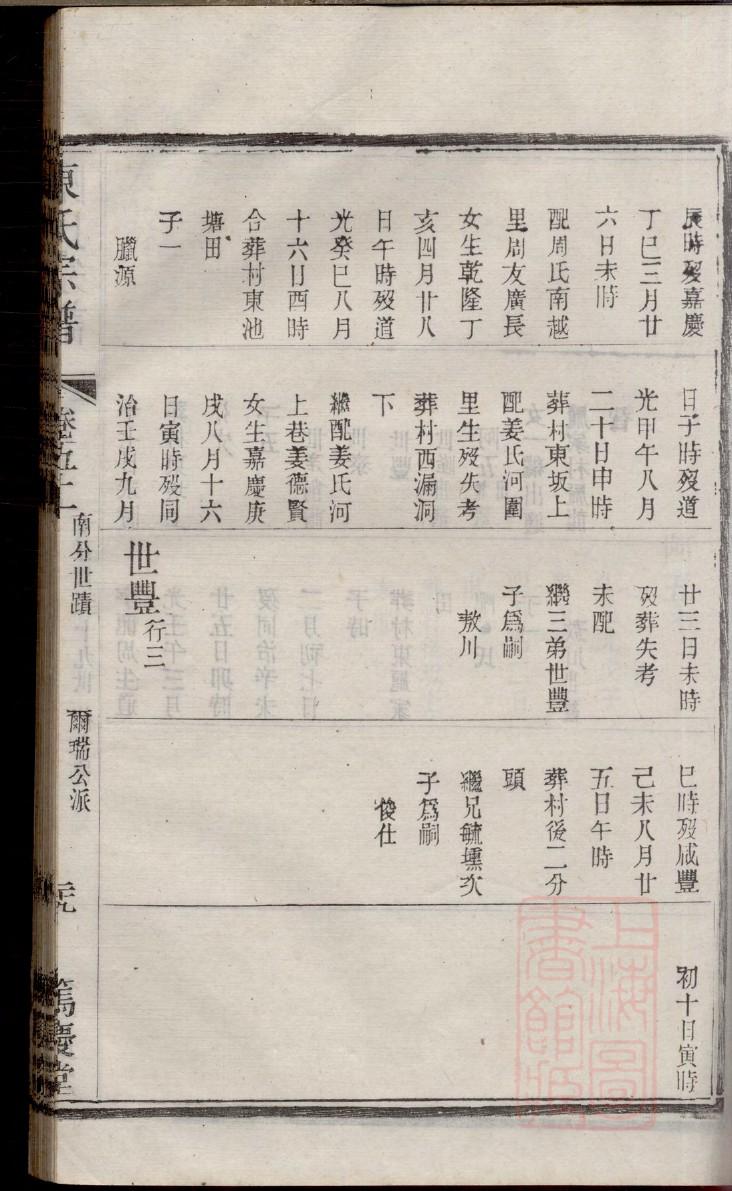 辰時歿嘉慶
丁巳三月廿
六日未時
配周氏南越
里周友廣長
女生乾隆丁
亥四月廿八
日午時歿道
光癸巳八月
十六日酉時
合葬村東池
塘田
子一
臘源
日子時歿道
光甲午八月
二十日申時
葬村東坂上
配姜氏河圍
里生歿失考
葬村西漏洞
下
繼配姜氏河
上巷姜德賢
女生嘉慶庚
戌八月十六
日寅時歿同
治壬戌九月
廿三日未時
歿葬失考
未配
繼三弟世豐
子爲嗣
敖川
世豐行三
巳時歿咸豐
己未八月廿
五日午時
葬村後二分
頭
繼兄毓壎次
子爲嗣
俊仕
初十日寅時
陳氏宗譜
南分世蹟
爾瑞公派
篤慶堂
上海圖
書館